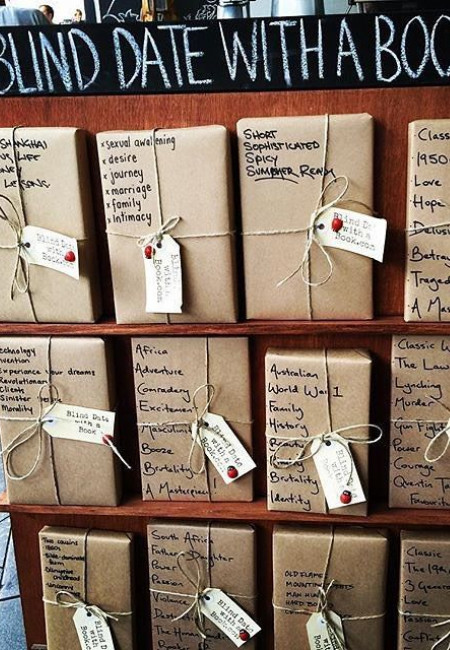 BLIND DATE WITH A BOO
SHANGHAI
LIFE
LESSONS
Blind Date
with a
Book.com
* sexual awakening
* desire
* journey
* marriage
* family
* intimacy
Blind Date
with a
Book.com
SHORT
SOPHISTICATED
SPICY
SUMMER READ
Blind Date
with a
Book.com
Class
1950
Love
Hope
Delusi
Betray
Traged
A Mas
Technology
Invention
Experience your dreams
Revolutionary
Clients
Sinister
Morality
Blind Date
with a
Book.com
Africa
Adventure
Comradery
Excitement
Masculini
Booze
Brutality
A Masterpiece!
Blind Date
with a
Book.com
Australian
World War 1
Family
History
Beauty
Brutality
Identity
Blind Date
with a
Book.com
Classic W
The Law
Lynching
Murder
Gun Fight
Power
Courage
Quentin Ta
Favourit
The cousins
1960s
male-dominate
farm
childhood
Blind Date
with a
South Africa
Father Daughter
Power
Passion
Violence
Booker
Blind Date
with a
Book.com
OLD FLAMES
MOUNTAIN
MAN
HARD
Blind Date
with a
Classic
The 19
3 Gener
Love
Passion
Conflict